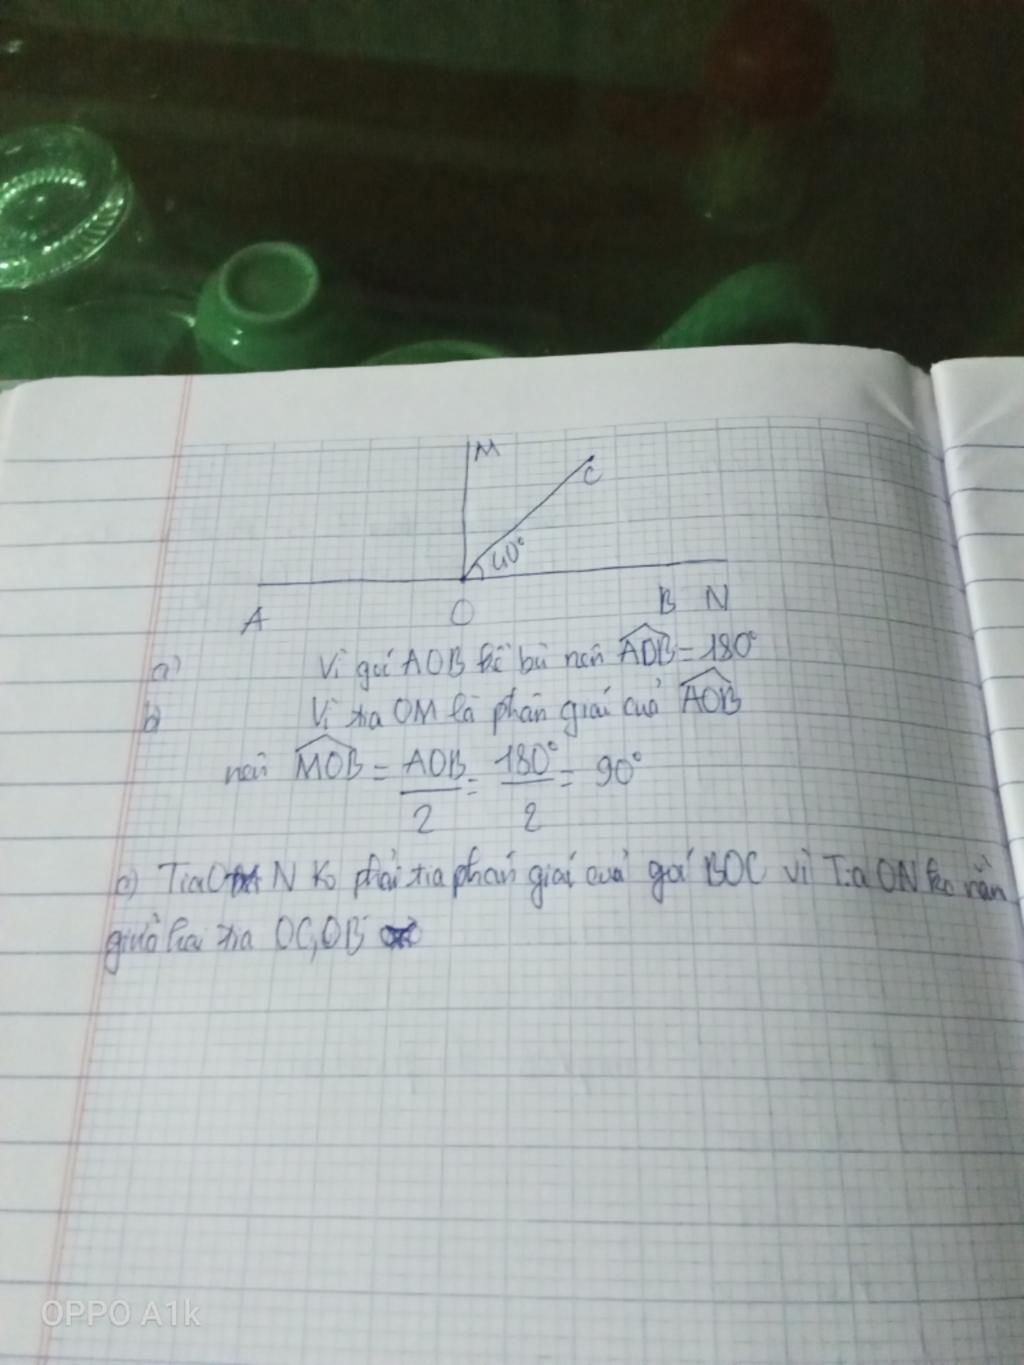 M
C
40°
A O B N
a) Vì góc AOB kề bù nên AOB = 180°
b) Vì tia OM là phân giác của AOB
nên MOB = AOB/2 = 180°/2 = 90°
c) Tia O N ko phải tia phân giác của góc BOC vì Tia ON ko nằm
giữa hai tia OC, OB
OPPO A1k